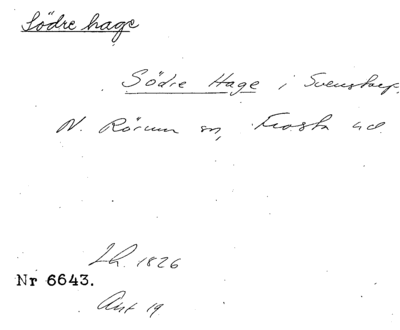 Södre hage
Södre Hage i Svenstorp,
N. Rörum sn, Frosta hd
Lh. 1826
Nr 6643.
Akt 19